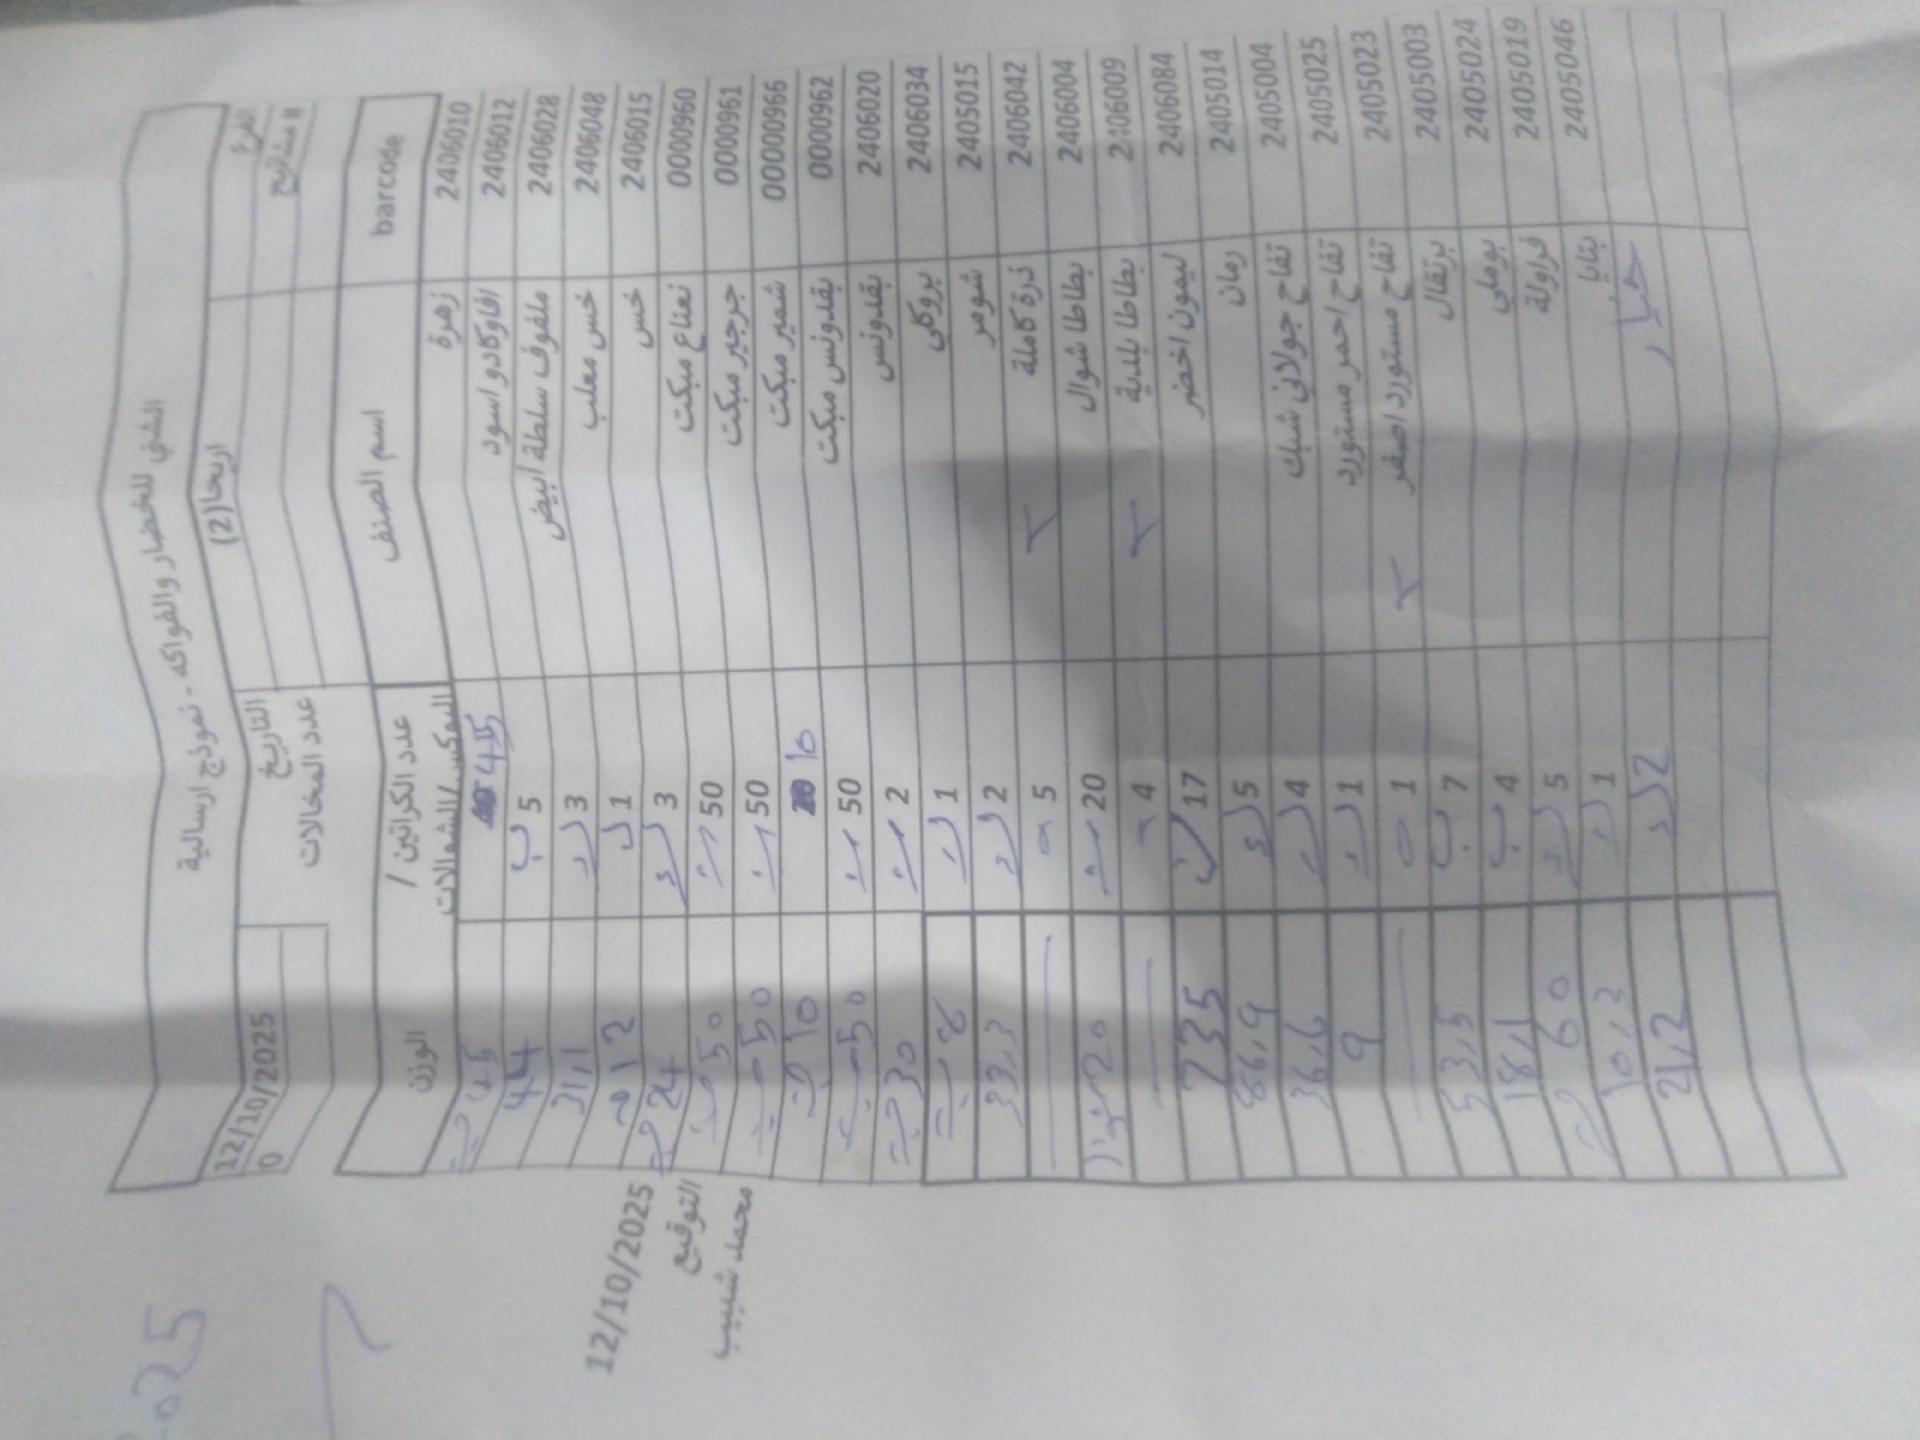 الشني للخضار والفواكه - نموذج ارسالية
الفرع اريحا (2) التاريخ 12/10/2025
# مشاتيح عدد المخالات 0
barcode اسم الصنف عدد الكراتين / البوكس/الشوالات الوزن
2406010 زهرة 45 45
2406012 افاوكادو اسود 5 44
2406028 ملفوف سلطة ابيض 3 31,1
2406048 خس معلب 1 12
2406015 خس 3 24
0000960 نعناع مبكت 50 50
0000961 جرجير مبكت 50 50
00000966 شمير مبكت 10 10
0000962 بقدونس مبكت 50 50
2406020 بقدونس 2 30
2406034 بروكلي 1 8
2405015 شومر 2 33,3
2406042 ذرة كاملة 5
2406004 بطاطا شوال 20 20
2406009 بطاطا بلدية 4
2406084 ليمون اخضر 17 235
2405014 رمان 5 86,9
2405004 تفاح جولاني شبك 4 36,6
2405025 تفاح احمر مستورد 1 9
2405023 تفاح مستورد اصفر 1
2405003 برتقال 7 53,5
2405024 بوملي 4 18,1
2405019 فراولة 5 60
2405046 بتايا 1 10,2
خيار 2 21,2
12/10/2025
التوقيع
محمد شبيب